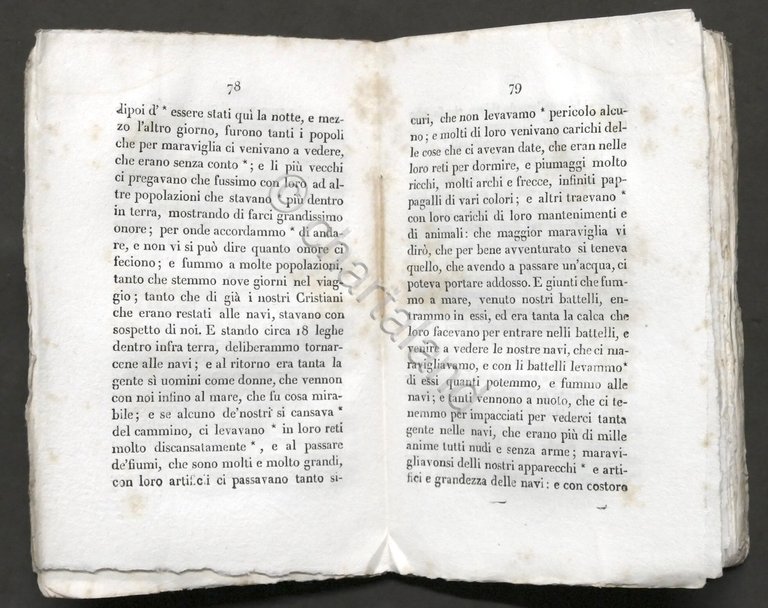 78
dipoi d' * essere stati quì la notte, e mez-
zo l'altro giorno, furono tanti i popoli
che per maraviglia ci venivano a vedere,
che erano senza conto * ; e li più vecchi
ci pregavano che fussimo con loro ad al-
tre popolazioni che stavano più dentro
in terra, mostrando di farci grandissimo
onore; per onde accordammo * di anda-
re, e non vi si può dire quanto onore ci
feciono; e fummo a molte popolazioni,
tanto che stemmo nove giorni nel viag-
gio; tanto che di già i nostri Cristiani
che erano restati alle navi, stavano con
sospetto di noi. E stando circa 18 leghe
dentro infra terra, deliberammo tornar-
cene alle navi; e al ritorno era tanta la
gente sì uomini come donne, che vennon
con noi infino al mare, che fu cosa mira-
bile; e se alcuno de'nostri si cansava *
del cammino, ci levavano * in loro reti
molto discansatamente * , e al passare
de'fiumi, che sono molti e molto grandi,
con loro artificii ci passavano tanto si-
79
curi, che non levavamo * pericolo alcu-
no; e molti di loro venivano carichi del-
le cose che ci avevan date, che eran nelle
loro reti per dormire, e piumaggi molto
ricchi, molti archi e frecce, infiniti pap-
pagalli di vari colori; e altri traevano *
con loro carichi di loro mantenimenti e
di animali: che maggior maraviglia vi
dirò, che per bene avventurato si teneva
quello, che avendo a passare un'acqua, ci
poteva portare addosso. E giunti che fum-
mo a mare, venuto nostri battelli, en-
trammo in essi, ed era tanta la calca che
loro facevano per entrare nelli battelli, e
venire a vedere le nostre navi, che ci ma-
ravigliavamo, e con li battelli levammo *
di essi quanti potemmo, e fummo alle
navi; e tanti vennono a nuoto, che ci te-
nemmo per impacciati per vederci tanta
gente nelle navi, che erano più di mille
anime tutti nudi e senza arme; maravi-
gliavonsi delli nostri apparecchi * e arti-
fici e grandezza delle navi: e con costoro
© chartaland